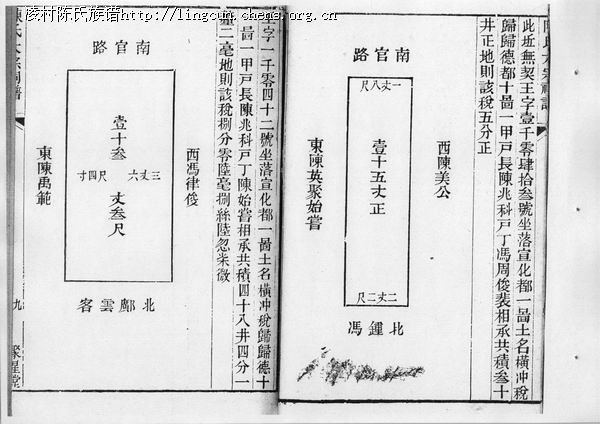 凌村陈氏族谱→http://lingcun.chens.org.cn
此近無契王字壹千零肆拾叁號坐落宣化都一啚土名橫冲稅
歸歸德都十啚一甲戶長陳兆科戶丁馮周俊裴相承共積叁十
井正地則該稅五分正
南官路
一丈八尺
西陳美公
壹十五丈正
東陳英聚始嘗
二丈二尺
北鍾馮
王字一千零四十二號坐落宣化都一啚土名橫冲稅歸歸德十
啚一甲戶長陳兆科戶丁陳始嘗相承共積四十八井四分一
釐二毫地則該稅捌分零陸毫捌絲陸忽柒微
南官路
西馮律俊
壹十叁丈叁尺
三丈六尺四寸
東陳禹範
北鄺雲客
九
聚星堂